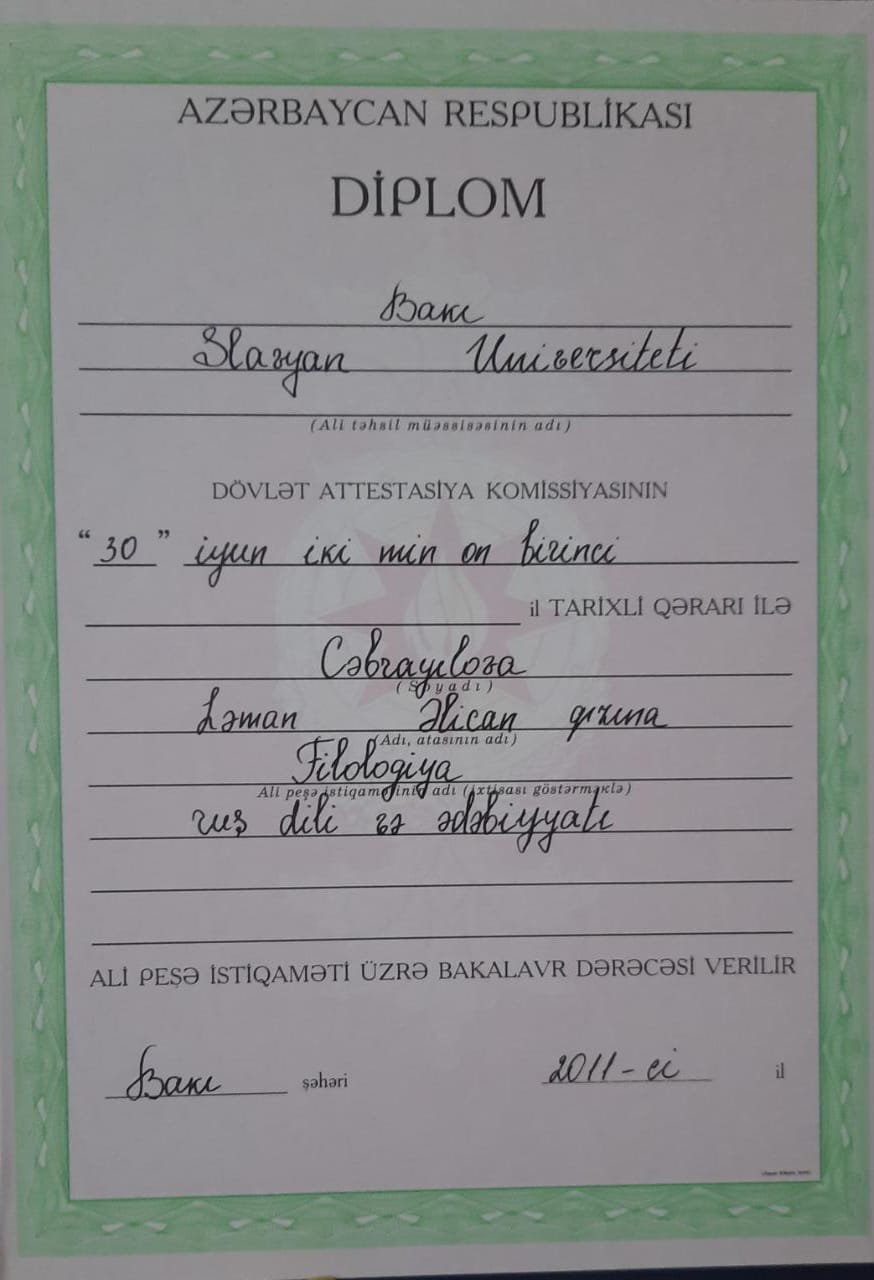 AZƏRBAYCAN RESPUBLİKASI
DİPLOM
Bakı
Slavyan Universiteti
(Ali təhsil müəssisəsinin adı)
DÖVLƏT ATTESTASİYA KOMİSSİYASININ
“30” iyun iki min on birinci
il TARİXLİ QƏRARI İLƏ
Cəbrayılova
(Soyadı)
Ləman Əlican qızına
(Adı, atasının adı)
Filologiya
Ali peşə istiqamətinin adı (ixtisası göstərməklə)
rus dili və ədəbiyyatı
ALİ PEŞƏ İSTİQAMƏTİ ÜZRƏ BAKALAVR DƏRƏCƏSİ VERİLİR
Bakı şəhəri 2011-ci il